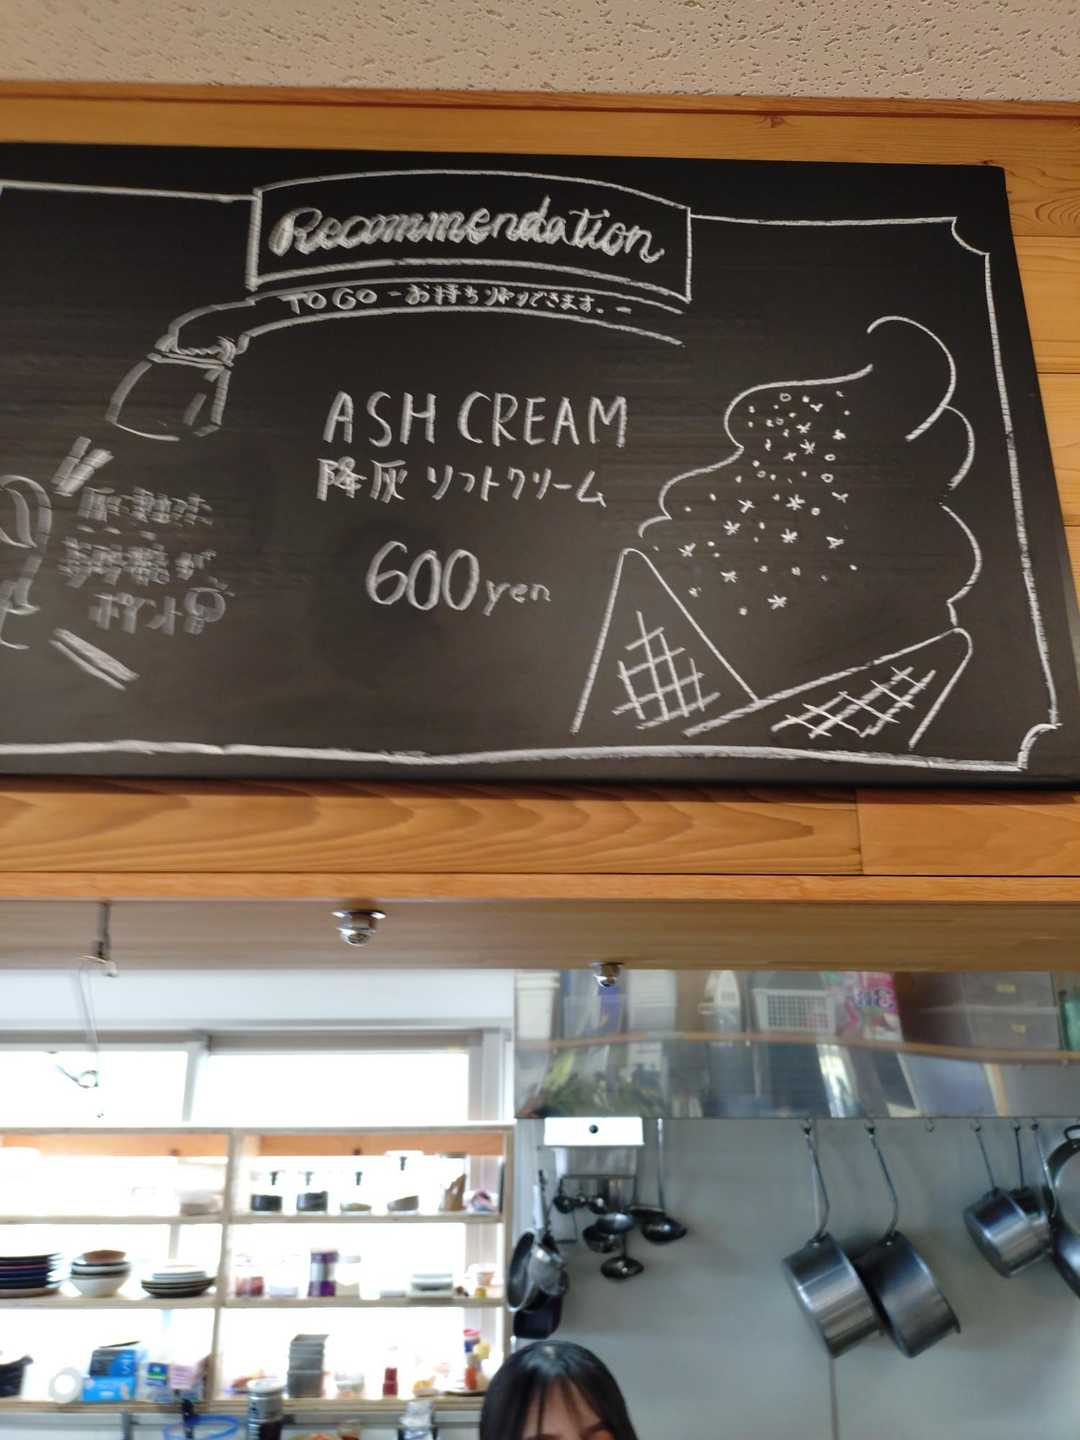 Recommendation
TO GO -お持ち帰りできます。-
ASH CREAM
降灰 ソフトクリーム
600yen
が
ポイント